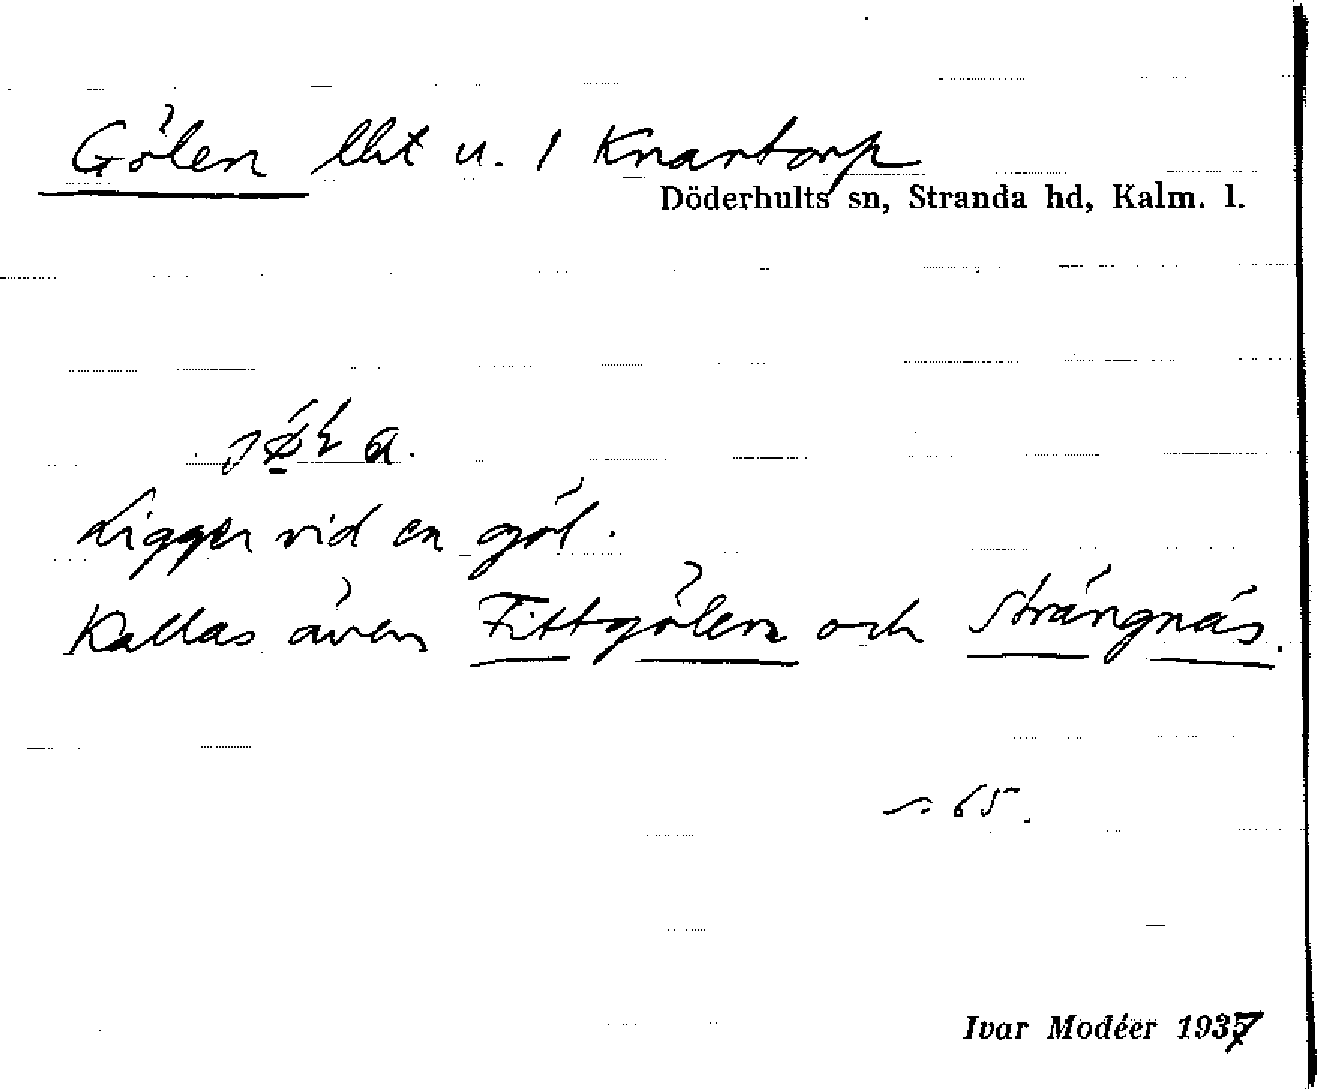 Gölen lht u. 1 Knartorp
Döderhults sn, Stranda hd, Kalm. l.
Ligger vid en göl.
Kallas även Fittgölen och Strängnäs.
s. 65.
Ivar Modéer 1937